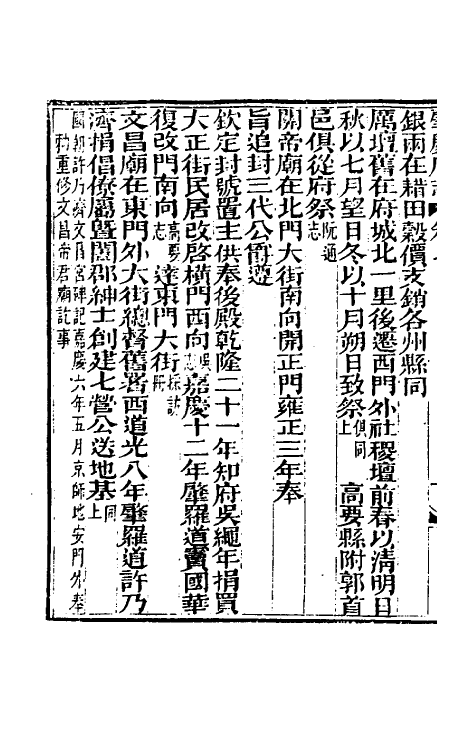 銀兩在耤田穀價支銷各州縣同
厲壇舊在府城北一里後遷西門外社稷壇前春以清明日
秋以七月望日冬以十月朔日致祭俱同上高要縣附郭首
邑俱從府祭阮通志
關帝廟在北門大街南向開正門雍正三年奉
旨追封三代公爵遵
欽定封號置主供奉後殿乾隆二十一年知府吳繩年捐買
大正街民居改啓橫門西向吳志嘉慶十二年肇羅道竇國華
復改門南向高要志達東門大街採訪冊
文昌廟在東門外大街總督舊署西道光八年肇羅道許乃
濟捐倡僚屬暨闔郡紳士創建七營公送地基同上
國朝許乃濟文昌宮碑記嘉慶六年五月京師地安門外奉
勅重修文昌帝君廟訖事